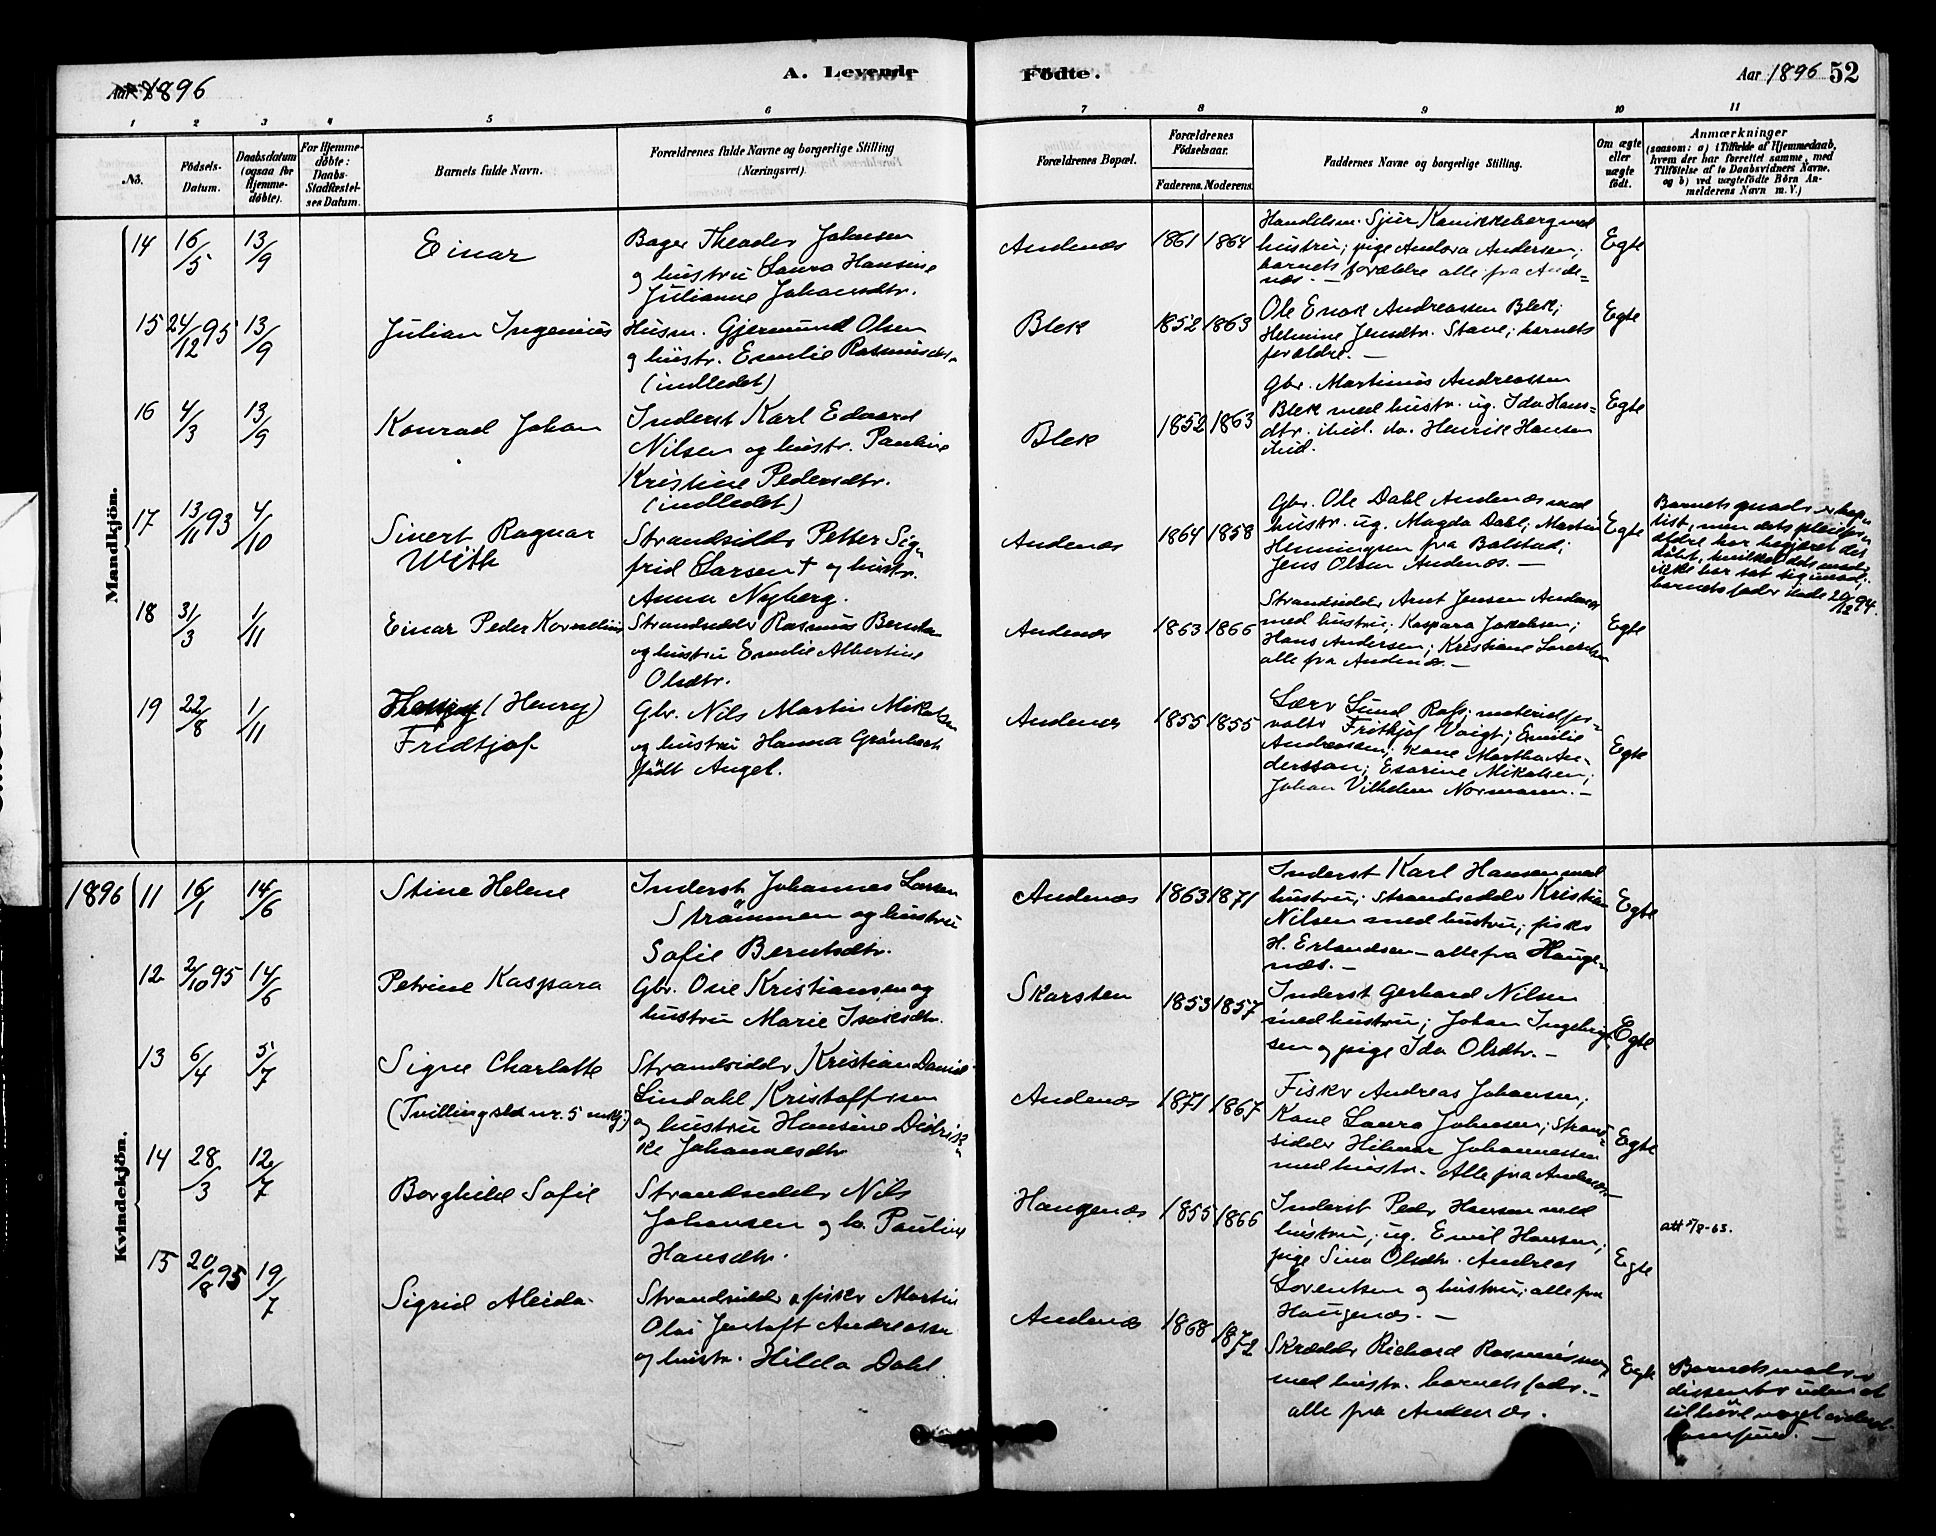 Aar 1896
A. Levende
Födte.
Aar 1896 52
1 2 3 4 5 6 7 8 9 10 11
No.
Födsels-
Datum.
Daabsdatum
(ogsaa for
Hjemme-
døbte).
For Hjemme-
døbte:
Daabs-
Stadfæstel-
ses Datum.
Barnets fulde Navn.
Forældrenes fulde Navne og borgerlige Stilling
(Næringsvei).
Forældrenes Bopæl.
Forældrenes
Födselsaar.
Faderens. Moderens.
Faddernes Navne og borgerlige Stilling.
Om ægte
eller
uægte
født.
Anmærkninger
(saasom: a) i Tilfælde af Hjemmedaab,
hvem der har forrettet samme, med
Tilføielse af to Daabsvidners Navne,
og b) ved uægtefødte Børn An-
melderens Navn m. V.)
Mandkjön.
14 16/5 13/9 Einar
Bager Theador Johnsen
og hustru Laura Hansine
Julianne Johansdtr.
Andenæs 1861 1864
Handelsm. Sjur Kanikkeberg med
hustru; pige Andora Andersen;
barnets forældre alle fra Ande-
næs. —
Egte
15 24/12 95 13/9 Julian Ingenius
Husm. Gjermund Olsen
og hustr. Emilie Rasmusdtr.
(indledet)
Blek 1852 1863
Ole Enok Andreassen Blek;
Helmine Jensdtr. Stave; barnets
forældre. —
Egte
16 4/3 13/9 Konrad Johan
Inderst Karl Edvard
Nilsen og hustr. Pauline
Kristine Pedersdtr.
(indledet)
Blek 1852 1863
Gbr. Martinus Andreassen
Blek med hustr. ug. Ida Hans=
dtr. ibid. do. Henrik Hansen
ibid.
Egte
17 13/11 93 4/10 Sivert Ragnar
With
Strandsidder Petter Sig=
frid Larsen † og hustr.
Anna Nyberg.
Andenæs 1864 1858
Gbr. Ole Dahl Andenæs med
hustr. ug. Magda Dahl; Martin
Henningsen fra Balstad;
Jens Olsen Andenæs. —
Egte
ikke har sat sig imod;
barnets fader døde 20/12 94.
18 31/3 1/11 Einar Peder Kornelius
Strandsidder Rasmus
og hustru Emilie Albertine
Olsdtr.
Andenæs 1863 1866
Strandsidder Arnt Jensen Andenæs
med hustru; Kaspara Jakobsen;
Hans Andersen; Kristiane
alle fra Andenæs. —
Egte
19 22/8 1/11 (Henry)
Fridtjof
Gbr. Nils Martin Mikalsen
og hustru Hanna Grönbeck
født Angel.
Andenæs 1855 1855
Lærer Lund materialfor-
valter Frithjof Voigt; Emilie
Andreassen; kone Martha An-
derssen; Esarine Mikalsen;
Johan Vilhelm Normann. —
Egte
1896
Kvindekjön.
11 16/1 14/6 Stine Helene
Inderst Johannes Larsen
Strömmen og hustru
Sofie Berntsdtr.
Andenæs 1863 1871
Inderst Karl Hansen med
hustru; Strandsidder Kristian
Nilsen med hustru; fisker
H. Erlandsen — alle fra Hauge-
næs. —
Egte
12 2/10 95 14/6 Petrine Kaspara
Gbr. Kristiansen og
hustru Marie Isaksdtr.
Skarsten 1853 1857
Inderst Gerhard Nilsen
med hustru; Johan Ingebrigt-
sen og pige Ida Olsdtr. —
Egte
13 6/4 5/7 Signe Charlotte
(Tvilling se nr. 5 mkj)
Strandsidder Kristian Daniel
Lindahl Kristoffersen
og hustru Hansine Didrik=
ke Johannesdtr.
Andenæs 1871 1867
Fisker Andreas Johansen;
Kone Laura Johnsen; Strand=
sidder Hilmar Johannessen
med hustr. Alle fra Andenæs.
Egte
14 28/3 12/7 Borghild Sofie
Strandsidder Nils
Johansen og h. Pauline
Hansdtr.
Haugenæs 1855 1866
Inderst Peder Hansen med
hustru; ug. Emil Hansen;
pige Sina Olsdtr. Andreas
Lorentsen og hustru; alle fra
Haugenæs. —
Egte
att 5/8-63.
15 20/8 95 19/7 Sigrid Aleida
Strandsidder & fisker Martin
Olai Gustaft Andreassen
og hustr. Hilda Dahl.
Andenæs 1868 1872
Skrædder Richard Rasmussen
med hustr. barnets fader. —
alle fra Andenæs.
Egte
Barnets moder er
dissenter uden at
tilhøre noget ordnet
samfund. —